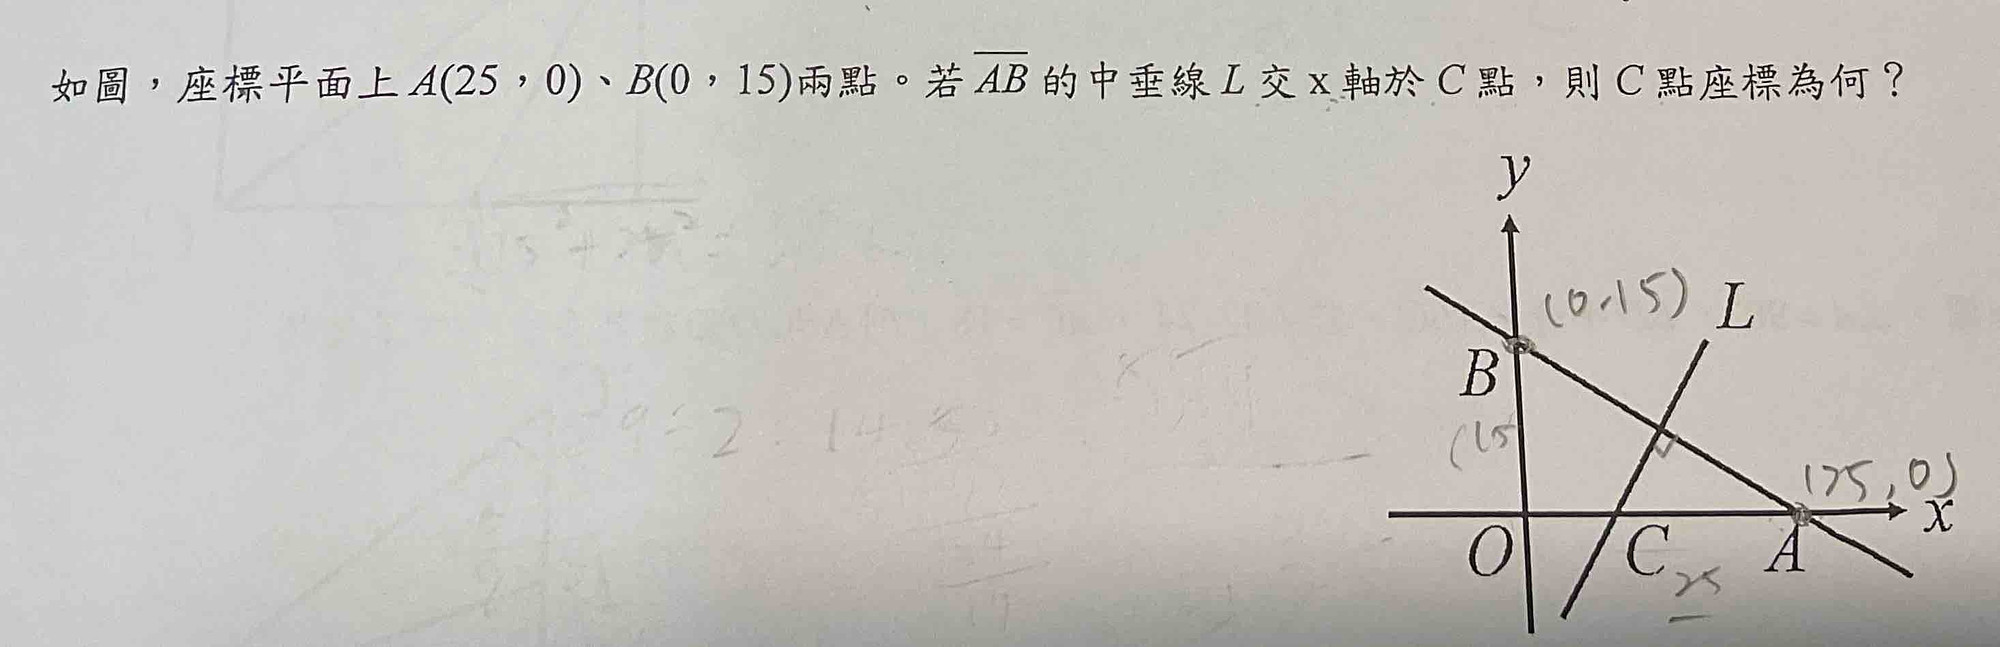 如圖，座標平面上A(25，0)、B(0，15)兩點。若AB的中垂線L交x軸於C點，則C點座標為何？
y
(0,15) L
B
(15
(25,0)
x
O C A
25